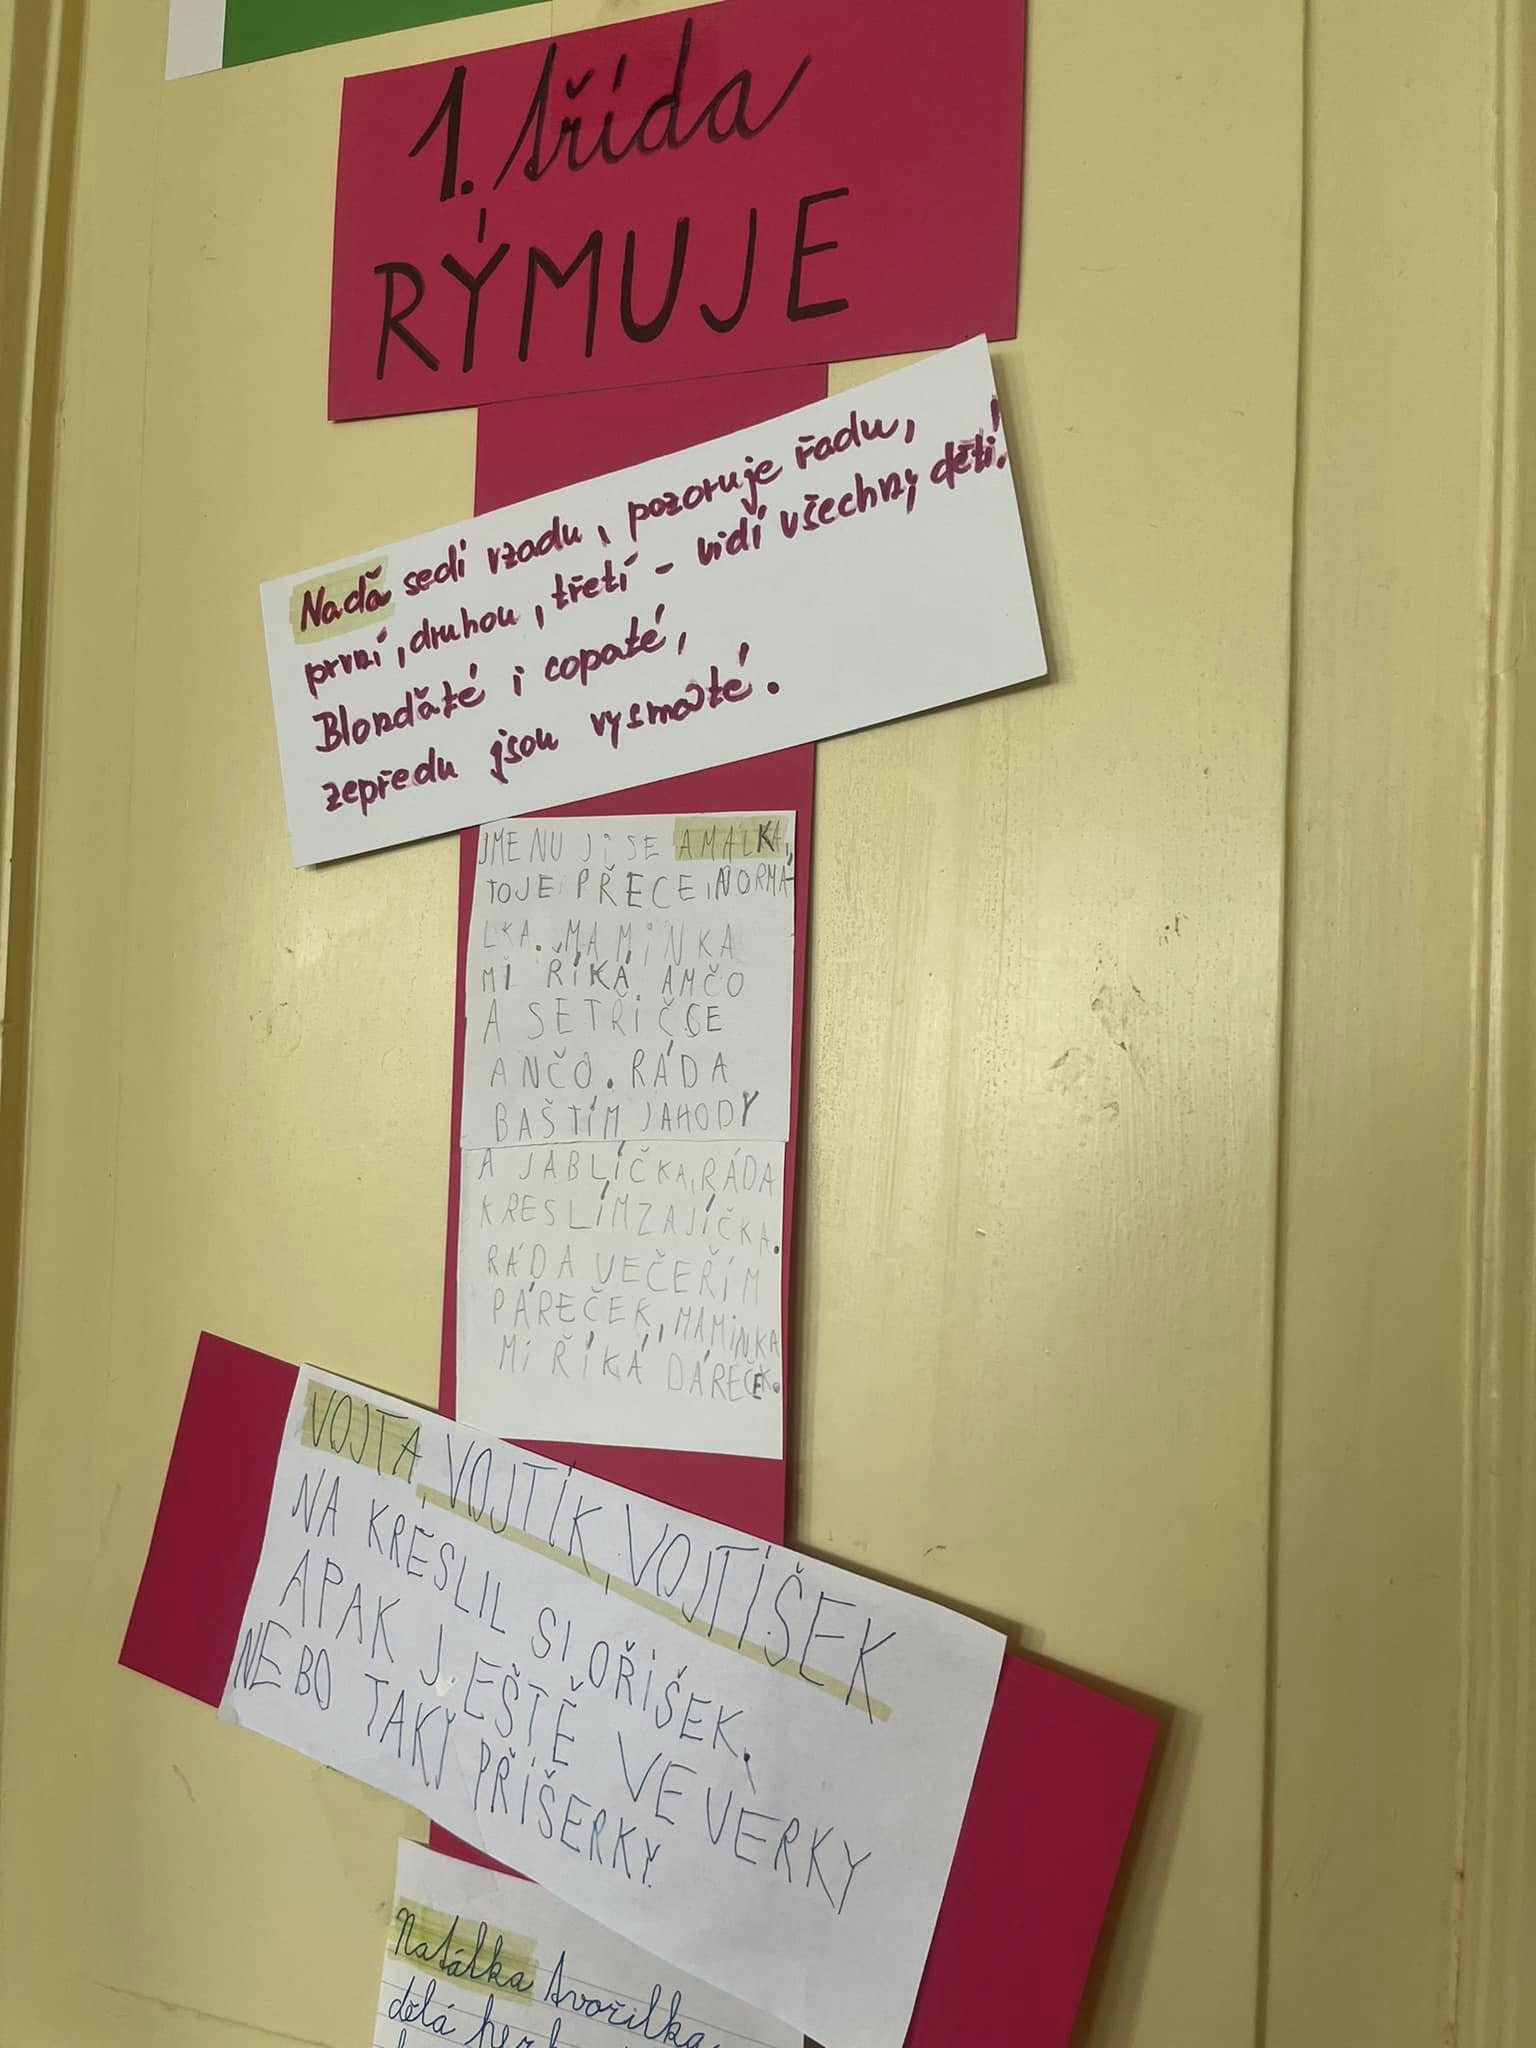 1. třída
RÝMUJE
Naďa sedí vzadu, pozoruje řadu,
první, druhou, třetí - vidí všechny děti.
Blonďaté i copaté,
zepředu jsou vysmáté.
JMENUJI SE AMÁLKA,
TOJE PŘECE, NORMÁ-
LKA. MAMINKA
MI ŘÍKÁ AMČO
A SETŘIČCE
ANČO. RÁDA
BAŠTÍM JAHODY
A JABLÍČKA, RÁDA
KRESLÍM ZAJÍČKA.
RÁDA VEČEŘÍM
PÁREČEK, MAMINKA
MI ŘÍKÁ DÁREČEK.
VOJTA, VOJTÍK, VOJTÍŠEK
NA KRESLIL SI OŘÍŠEK.
APAK JEŠTĚ VEVERKY
NEBO TAKÝ PŘÍŠERKY.
Natálka tvořilka,
dělá